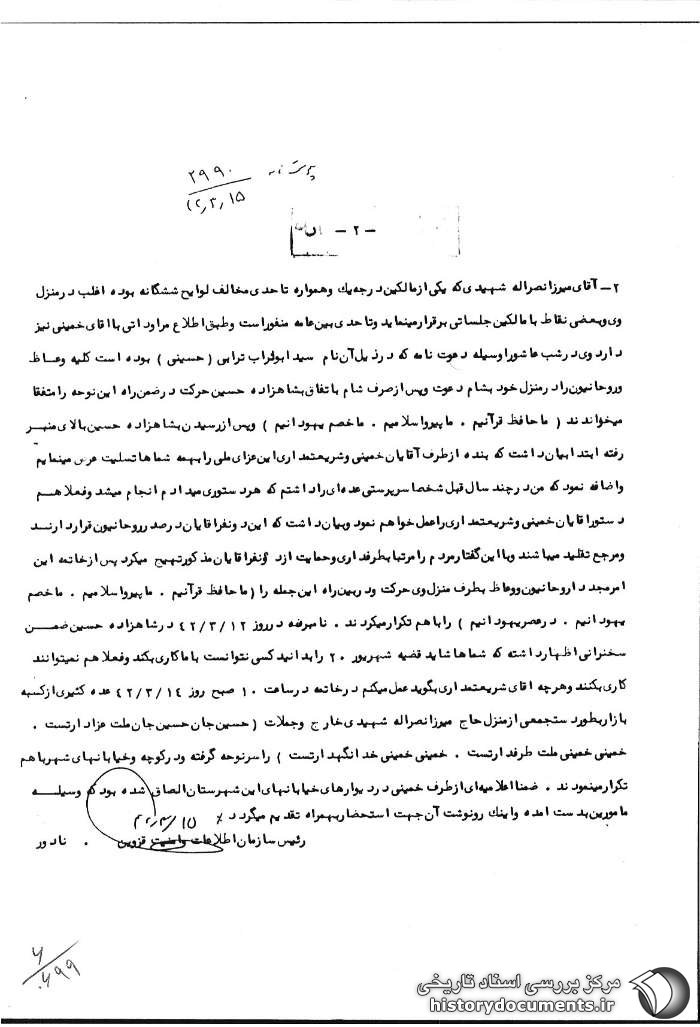 ۲۹۹۰
۴۲٫۳٫۱۵
- ۲ -
۲ – آقای میرزا نصراله شهیدی که یکی از مالکین درجه یك و همواره تا حدی مخالف لوایح ششگانه بوده اغلب در منزل
وی و بعضی نقاط با مالکین جلساتی برقرار مینماید و تا حدی بین عامه منفور است و طبق اطلاع مراوداتی با اقای خمینی نیز
دارد وی در شب عاشورا وسیله دعوت نامه که در ذیل آن نام سید ابوتراب ترابی ( حسینی ) بوده است کلیه وعاظ
و روحانیون را در منزل خود بشام دعوت و پس از صرف شام با تفاق بشاهزاده حسین حرکت در ضمن راه این نوحه را متفقا
میخواندند ( ما حافظ قرآنیم . ما پیرو اسلامیم . ما خصم یهودانیم ) و پس از رسیدن بشاهزاده حسین بالای منبر
رفته ابتدا بیان داشت که بنده از طرف آقایان خمینی و شریعتمداری این عزای ملی را بهمه شماها تسلیت عرض مینمایم
و اضافه نمود که من در چند سال قبل شخصا سرپرستی عده ای را داشتم که هر دستوری میدادم انجام میشد و فعلا هم
دستور اقایان خمینی و شریعتمداری را عمل خواهم نمود و بیان داشت که این دو نفر اقایان در صدر روحانیون قرار دارند
و مرجع تقلید میباشند و با این گفتار مردم را مرتبا بطرفداری و حمایت از دو نفر اقایان مذکور تهییج میکرد پس از خاتمه این
امر مجددا روحانیون و وعاظ بطرف منزل وی حرکت و در بین راه این جمله را ( ما حافظ قرآنیم . ما پیرو اسلامیم . ما خصم
یهودانیم . در عصر یهودانیم ) را با هم تکرار میکردند . نامبرده در روز ۴۲/۳/۱۲ در شاهزاده حسین ضمن
سخنرانی اظهار داشته که شماها شاید قضیه شهریور ۲۰ را بدانید کسی نتوانست با ما کاری بکند و فعلا هم نمیتوانند
کاری بکنند و هرچه اقای شریعتمداری بگوید عمل میکنم در خاتمه در ساعت ۱۰ صبح روز ۴۲/۳/۱۴ عده کثیری از کسبه
بازار بطور دستجمعی از منزل حاج میرزا نصراله شهیدی خارج و جملات ( حسین جان حسین جان ملت عزادارتست .
خمینی خمینی ملت طرفدارتست . خمینی خمینی خدا نگهدارتست ) را سر نوحه گرفته و در کوچه و خیابانهای شهر با هم
تکرار مینمودند . ضمنا اعلامیه ای از طرف خمینی در دیوارهای خیابانهای این شهرستان الصاق شده بود که وسیله
مامورین بدست امده و اینك رونوشت آن جهت استحضار بهمراه تقدیم میگردد ٪
۴۲٫۳٫۱۵
رئیس سازمان اطلاعات و امنیت قزوین . نادور
مرکز بررسی اسناد تاریخی
historydocuments.ir